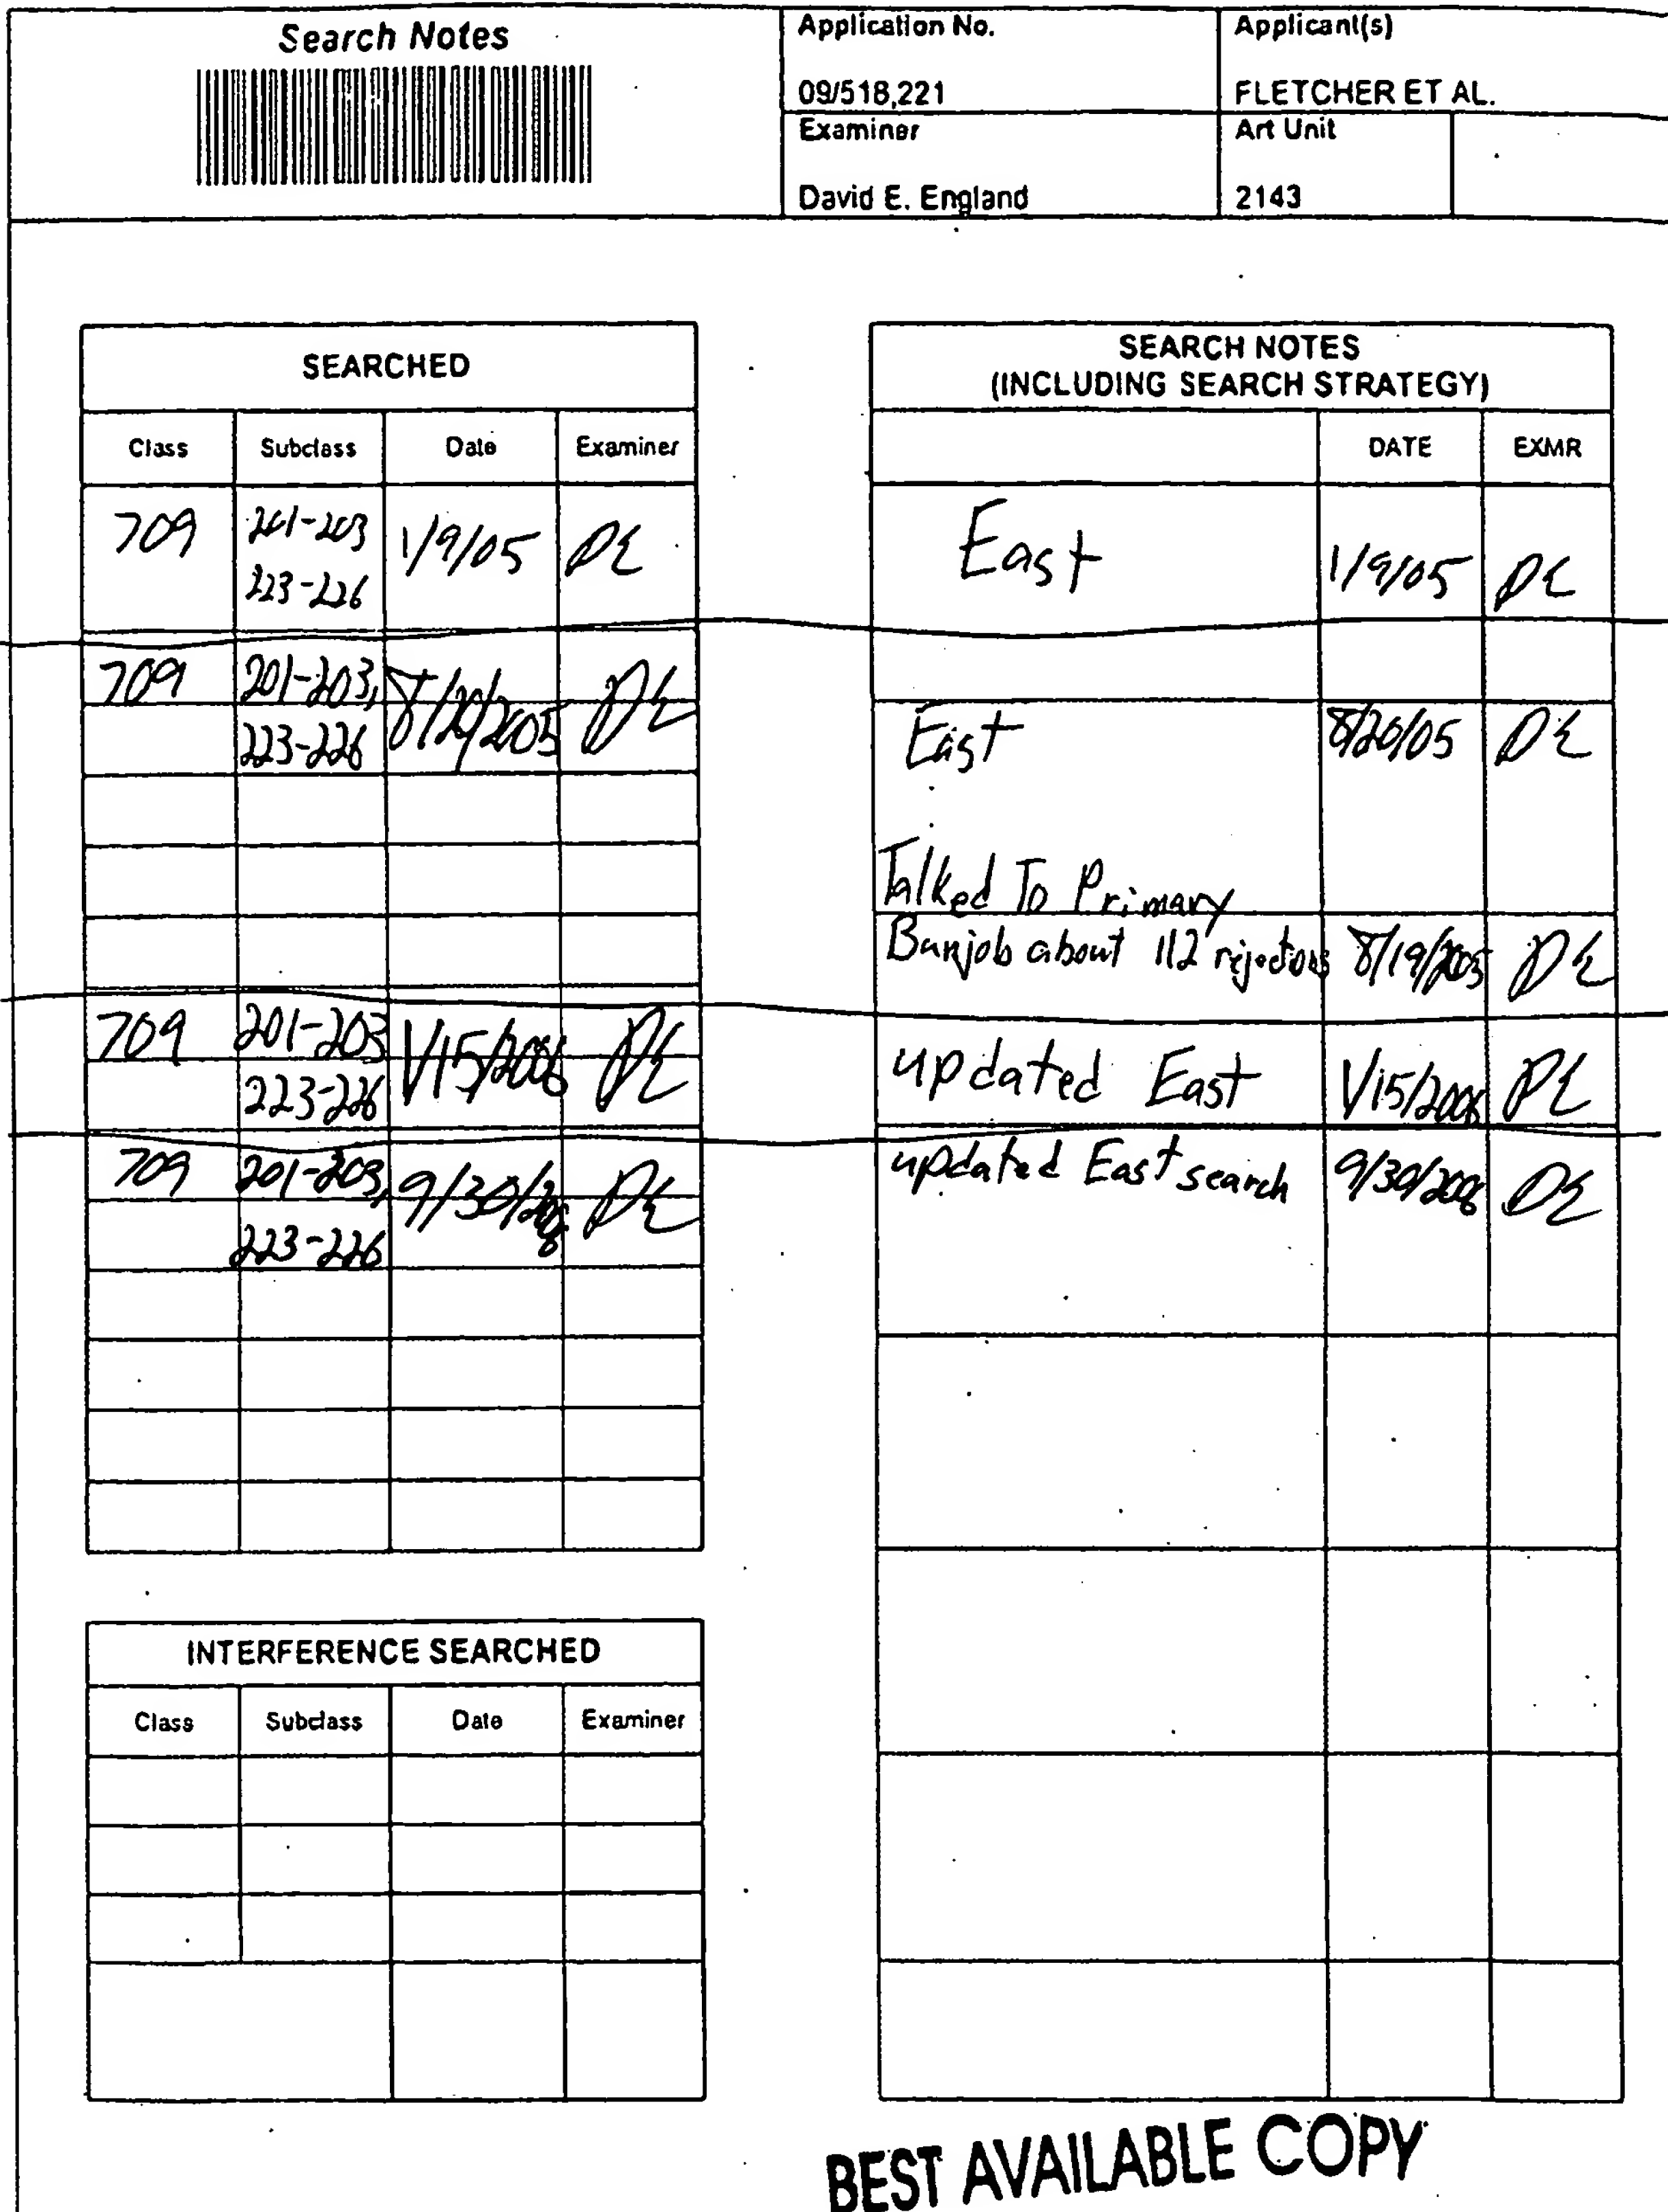 Search Notes
Application No.
Applicant(s)
09/518,221
FLETCHER ET AL.
Examiner
Art Unit
David E. England
2143
SEARCHED
Class Subclass Date Examiner
709 201-203 1/9/05 DE
223-226
709 201-203, 8/20/2005 DE
223-226
709 201-203 1/15/2006 DE
223-226
709 201-203, 9/30/2006 DE
223-226
INTERFERENCE SEARCHED
Class Subclass Date Examiner
SEARCH NOTES
(INCLUDING SEARCH STRATEGY)
DATE EXMR
East 1/9/05 DE
East 8/20/05 DE
Talked To Primary
Bunjob about 112 rejections 8/19/2005 DE
updated East 1/15/2006 DE
updated East search 9/30/2006 DE
BEST AVAILABLE COPY